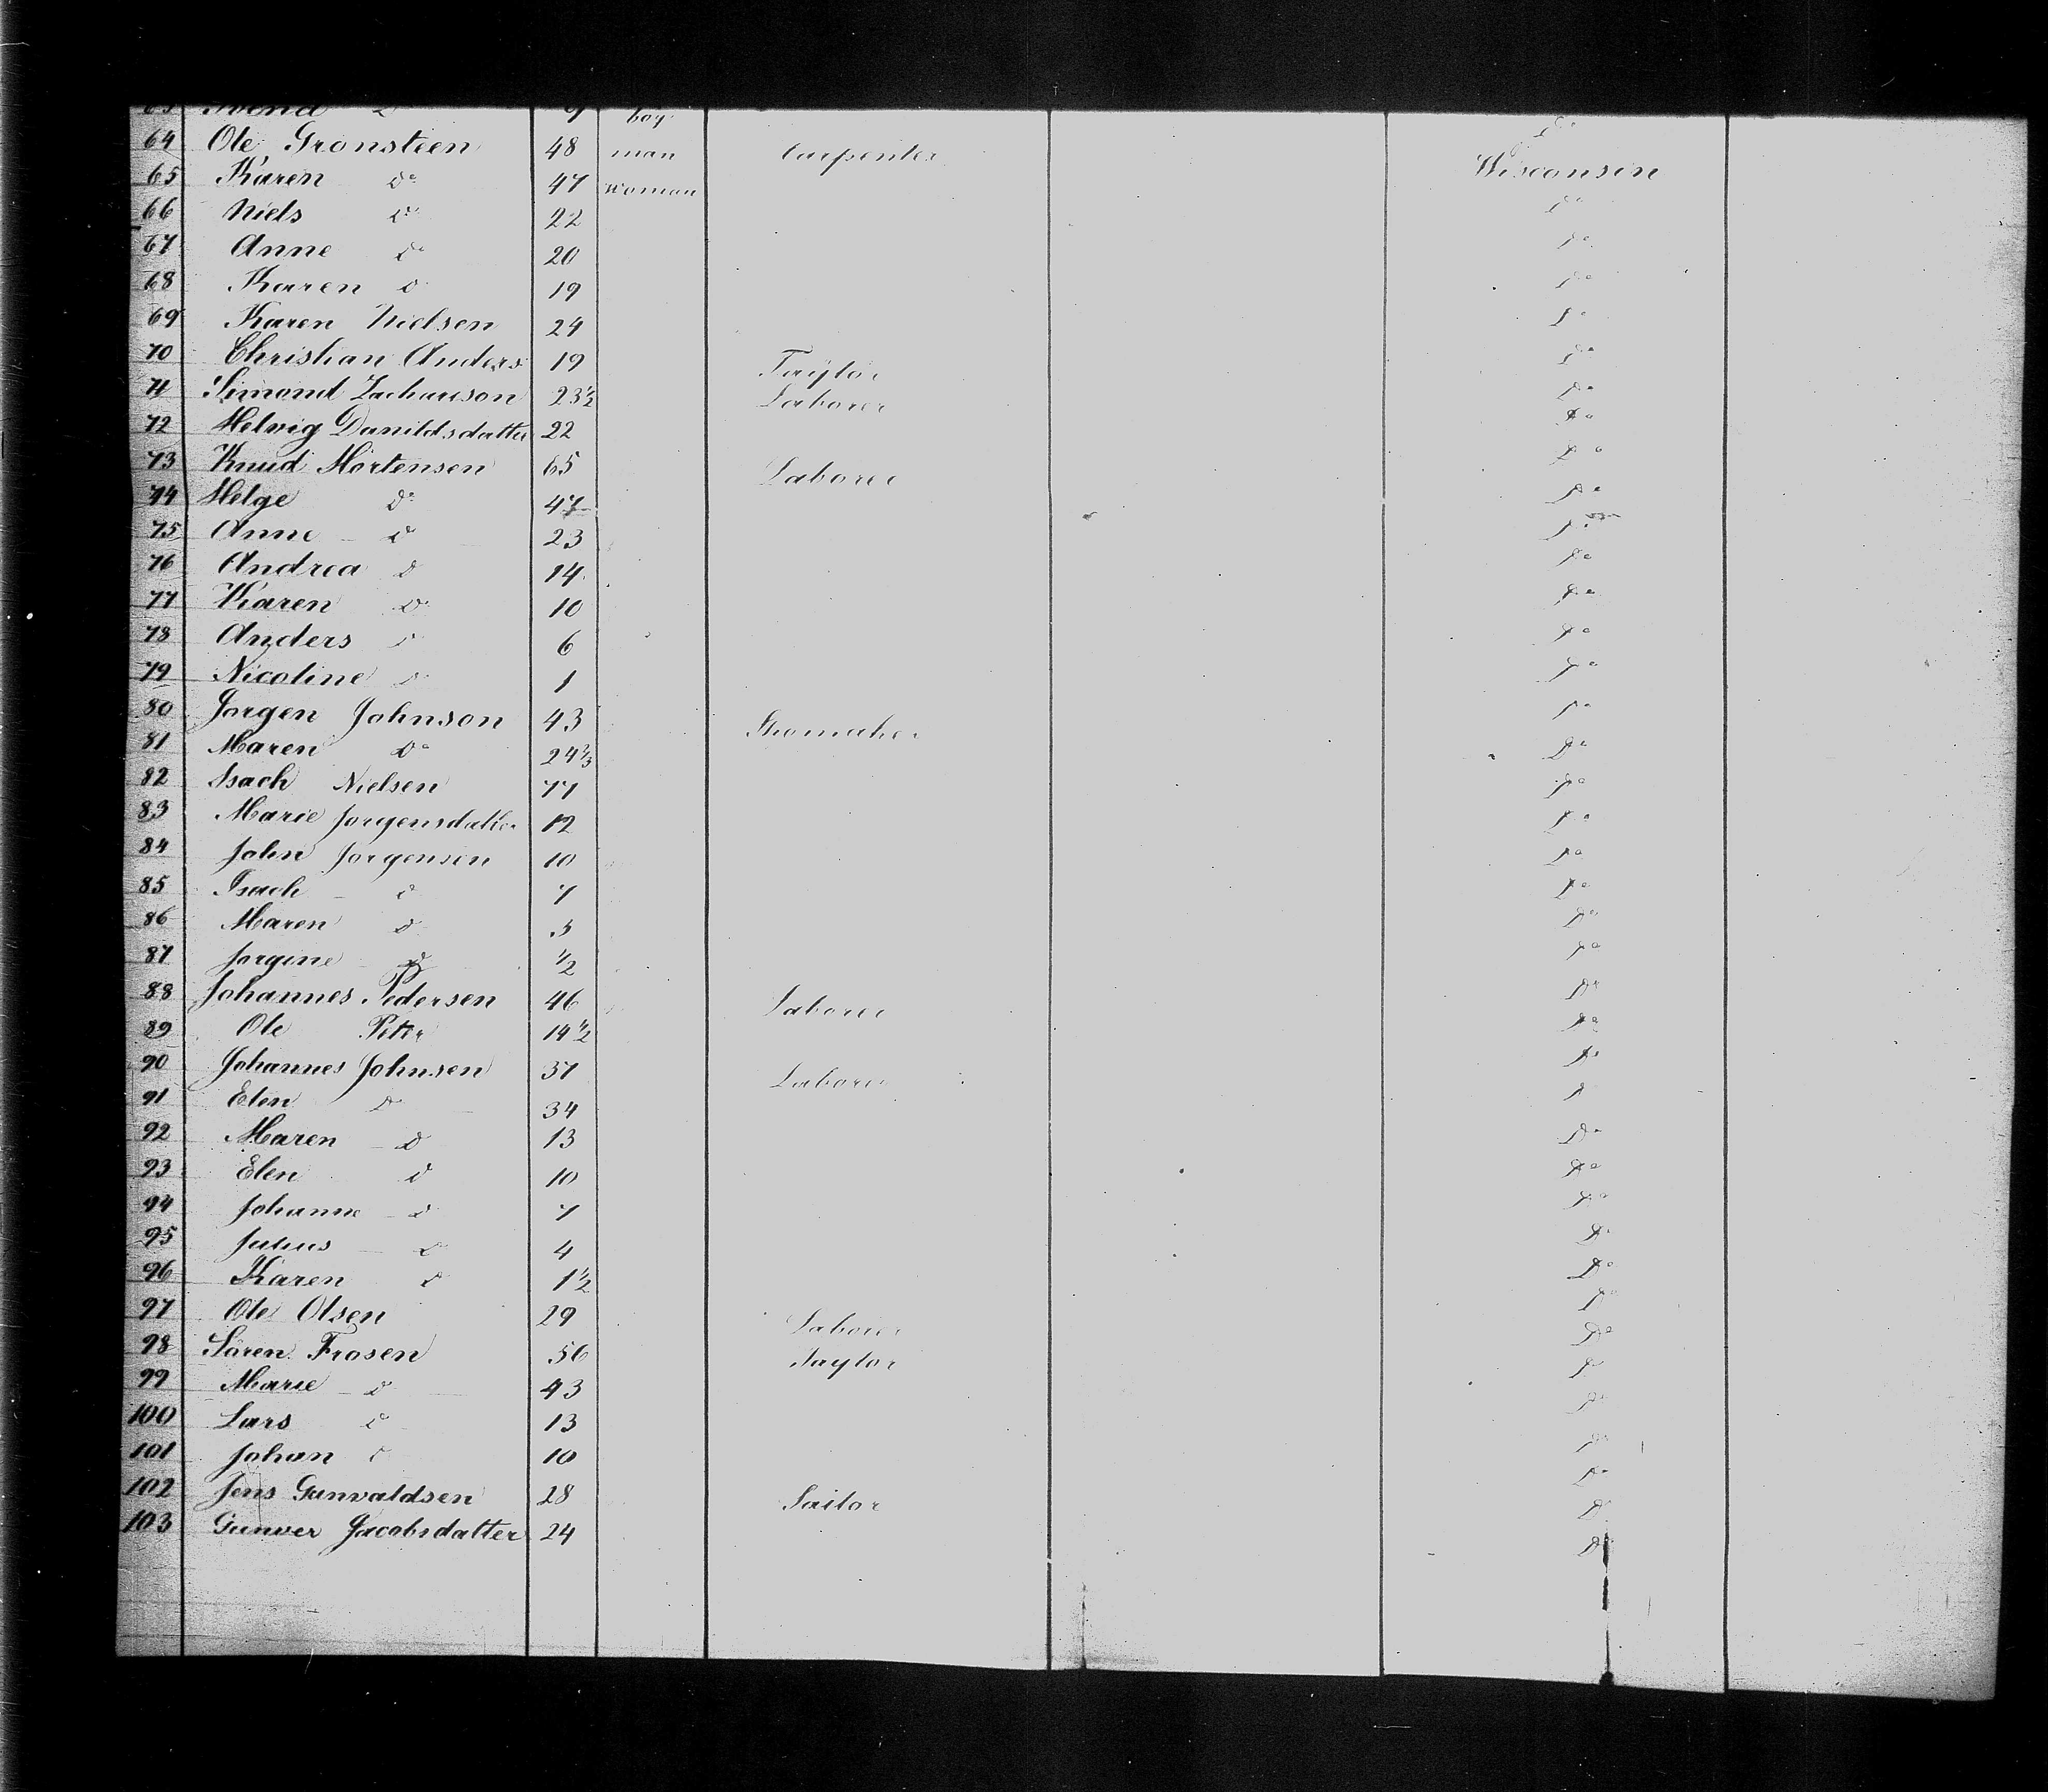 63 Svend Do 9 boy Do
64 Ole Gronsteen 48 man Carpenter Wisconsin
65 Karen Do 47 Woman Do
66 Niels Do 22 Do
67 Anne Do 20 Do
68 Karen Do 19 Do
69 Karen Nielsen 24 Do
70 Christian Anders 19 Taylor Do
71 Simond Zacharison 23½ Laborer Do
72 Helvig Danildsdatter 22 Do
73 Knud Mortensen 65 Laborer Do
74 Helge Do 47 Do
75 Anne Do 23 Do
76 Andrea Do 14 Do
77 Karen Do 10 Do
78 Anders Do 6 Do
79 Nicoline Do 1 Do
80 Jorgen Johnson 43 Shomaker Do
81 Maren Do 24⅔ Do
82 Isach Nielsen 77 Do
83 Marie Jorgensdatter 12 Do
84 John Jorgensen 10 Do
85 Isach Do 7 Do
86 Maren Do 5 Do
87 Jorgine Do ½ Do
88 Johannes Pedersen 46 Laborer Do
89 Ole Peter 14½ Do
90 Johannes Johnsen 37 Laborer Do
91 Elen Do 34 Do
92 Maren Do 13 Do
93 Elen Do 10 Do
94 Johanne Do 7 Do
95 Julius Do 4 Do
96 Karen Do 1½ Do
97 Ole Olsen 29 Laborer Do
98 Sören Frosen 56 Taylor Do
99 Marie Do 43 Do
100 Lars Do 13 Do
101 Johan Do 10 Do
102 Jens Gunvaldsen 28 Sailor Do
103 Gunver Jacobsdatter 24 Do